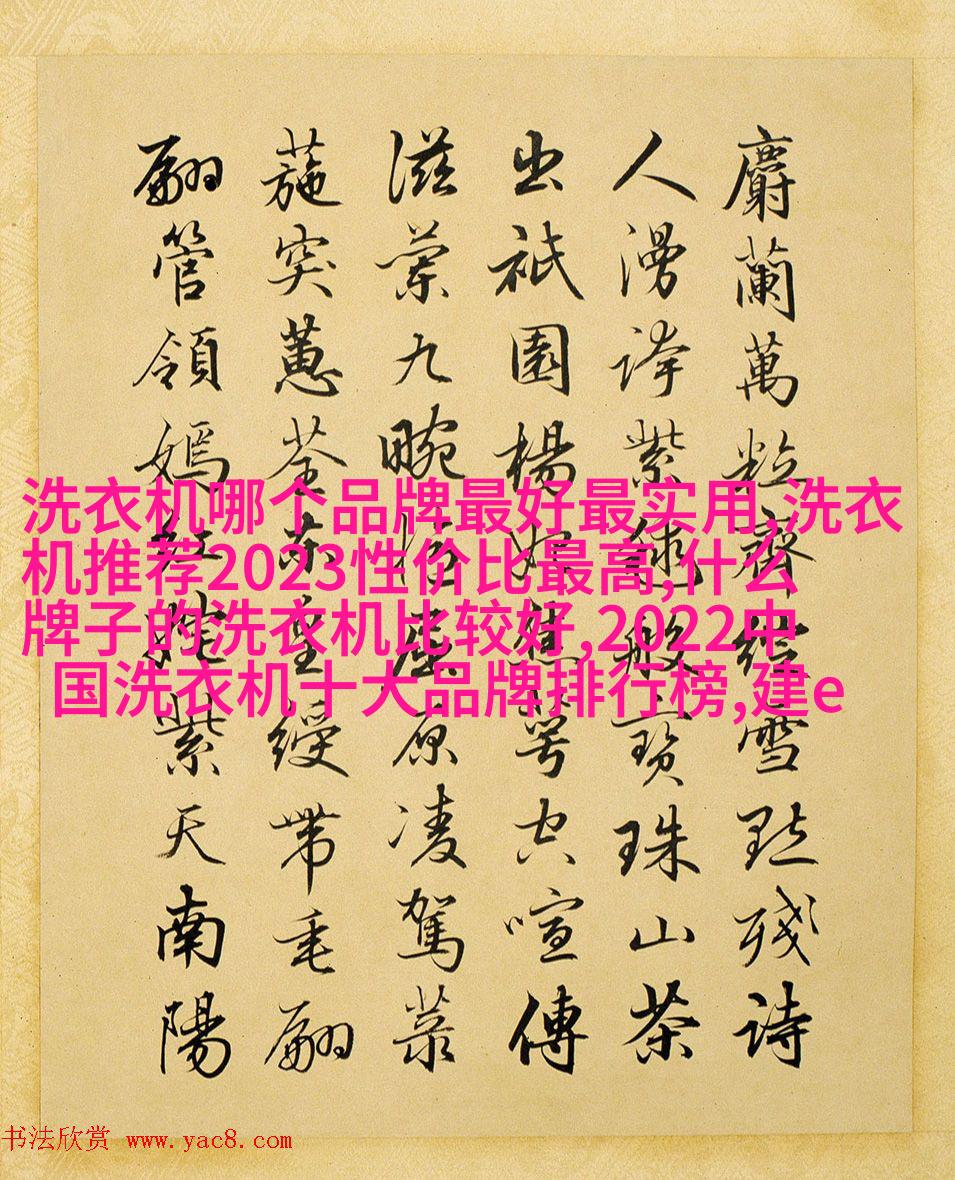 麝蘭萬粒雪點殘詩
人漫誇紫般寶珠山茶
出祇園楊妃萼空喧傳
滋蘭九畹陋屈原凌駕菉
葹突蕙荃綬帶毛翩
翩管領嫣紅姹紫天南陽
洗衣机哪个品牌最好最实用,洗衣
机推荐2023性价比最高,什么
牌子的洗衣机比较好,2022中
国洗衣机十大品牌排行榜,建e
书法欣赏 www.yac8.com